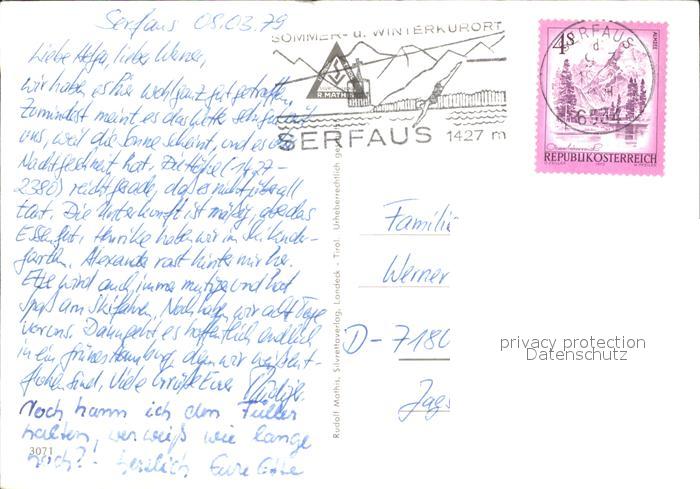 Serfaus 09.03.79
Liebe Helga, lieber Werner,
wir haben es hier wohl ganz gut getroffen.
Zumindest meint es das Wetter sehr gut mit
uns, weil die Sonne scheint, und es
Nachtgeschneit hat. Die Höhe (1427-
2380) reicht gerade, daß es nicht überall
taut. Die Unterkunft ist mäßig, aber das
Essen gut, Henrike haben wir im Skikinder-
garten. Alexander rast hinter mir her.
Etje wird auch immer mutiger und hat
Spaß am Skifahren. Noch haben wir acht Tage
vor uns. Dann geht es hoffentlich endlich
in ein grünes Hamburg, denn wir
sind. Viele Grüße Eure Rüdiger.
Noch kann ich den Füller
halten, wer weiß wie lange
noch? - herzlich Eure Etje
3071
Rudolf Mathis, Silvrettaverlag, Landeck - Tirol. Urheberrechtlich ge
SOMMER- u. WINTERKURORT
R. MATHIS
SERFAUS 1427 m
4S
SERFAUS
6534
REPUBLIK ÖSTERREICH
Famili
Werner
D-7180
Jags
privacy protection
Datenschutz